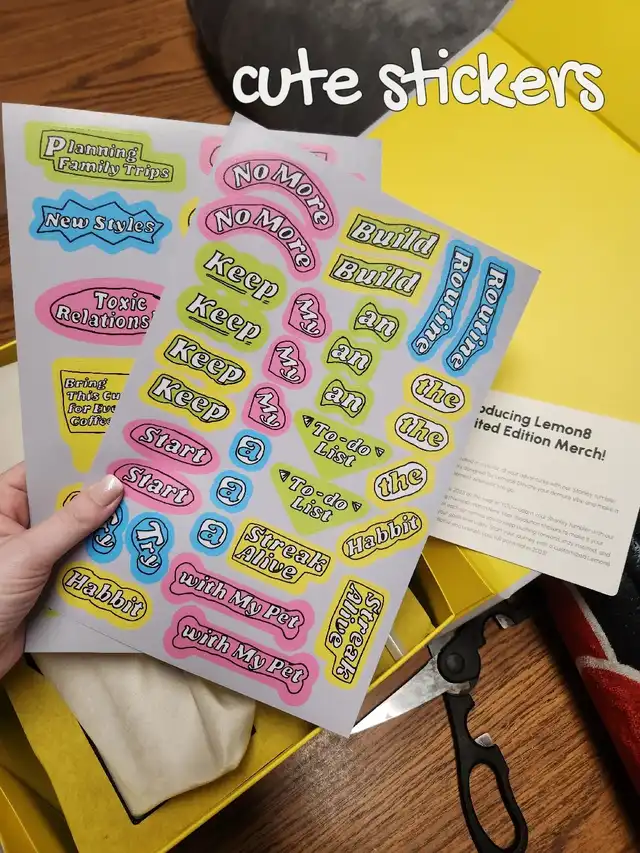 cute stickers
Planning
Family Trips
New Styles
Toxic
Relations
Bring
This Cu
for Eve
Coffee
No More
No More
Keep
Keep
Keep
Keep
My
My
My
Build
Build
an
an
an
Routine
Routine
the
the
the
Start
Start
a
a
a
To-do
List
To-do
List
Try
Habbit
Streak
Alive
Habbit
with My Pet
with My Pet
Streak
Alive
oducing Lemon8
ited Edition Merch!